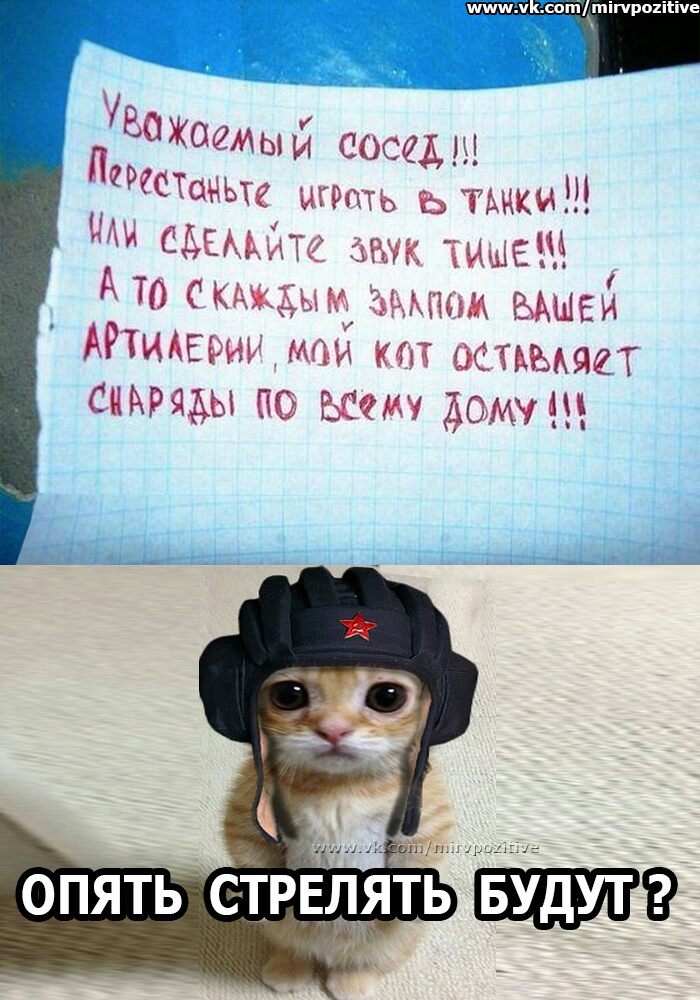 www.vk.com/mirvpozitive
Уважаемый сосед!!!
Перестаньте играть в танки!!!
Или сделайте звук тише!!!
А то с каждым залпом вашей
артилерии, мой кот оставляет
снаряды по всему дому!!!
www.vk.com/mirvpozitive
ОПЯТЬ СТРЕЛЯТЬ БУДУТ?